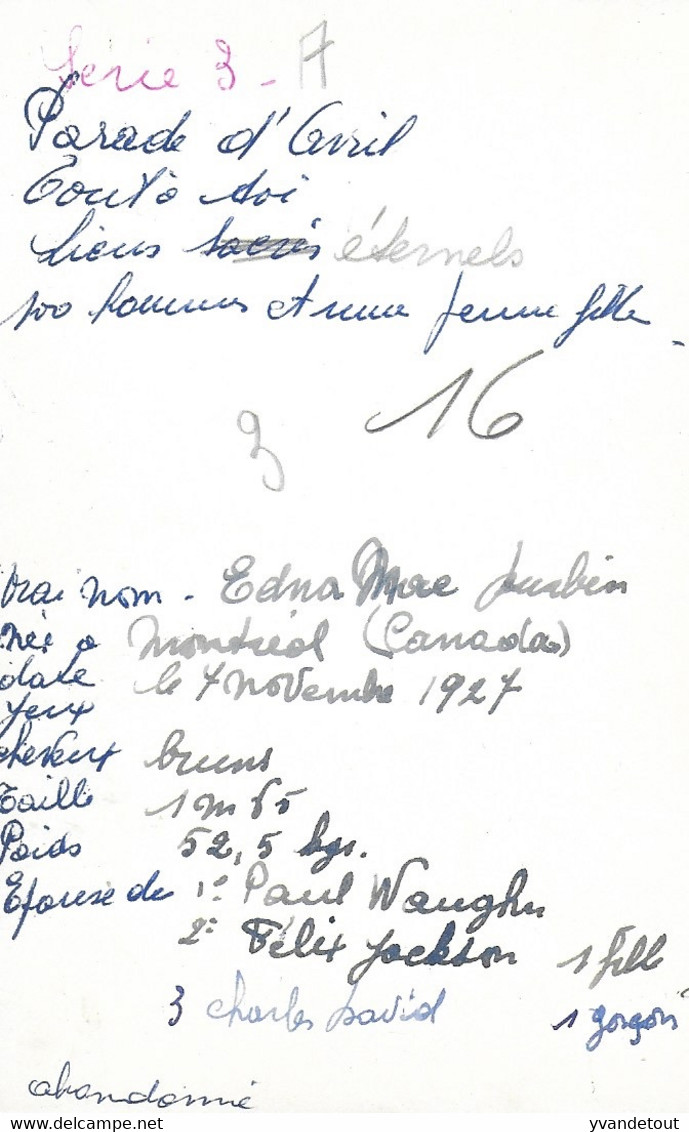 Série 3 - A
Parade d'Avril
Tout à toi
Liens sacrés éternels
100 hommes et une jeune fille -
16
3
Vrai nom - Edna Mae Durbin
née à Montréal (Canada)
date le 7 novembre 1927
yeux
cheveux bruns
Taille 1 m 65
Poids 52,5 kgs.
Epouse de 1° Paul Waughn
2° Félix Jackson 1 fille
3 Charles David 1 garçon
abandonné
yvandetout
© delcampe.net